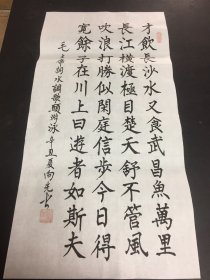 才飲長沙水又食武昌魚萬里
長江橫渡極目楚天舒不管風
吹浪打勝似閑庭信步今日得
寬餘子在川上曰逝者如斯夫
毛主席詞水調歌頭游泳 辛丑夏向